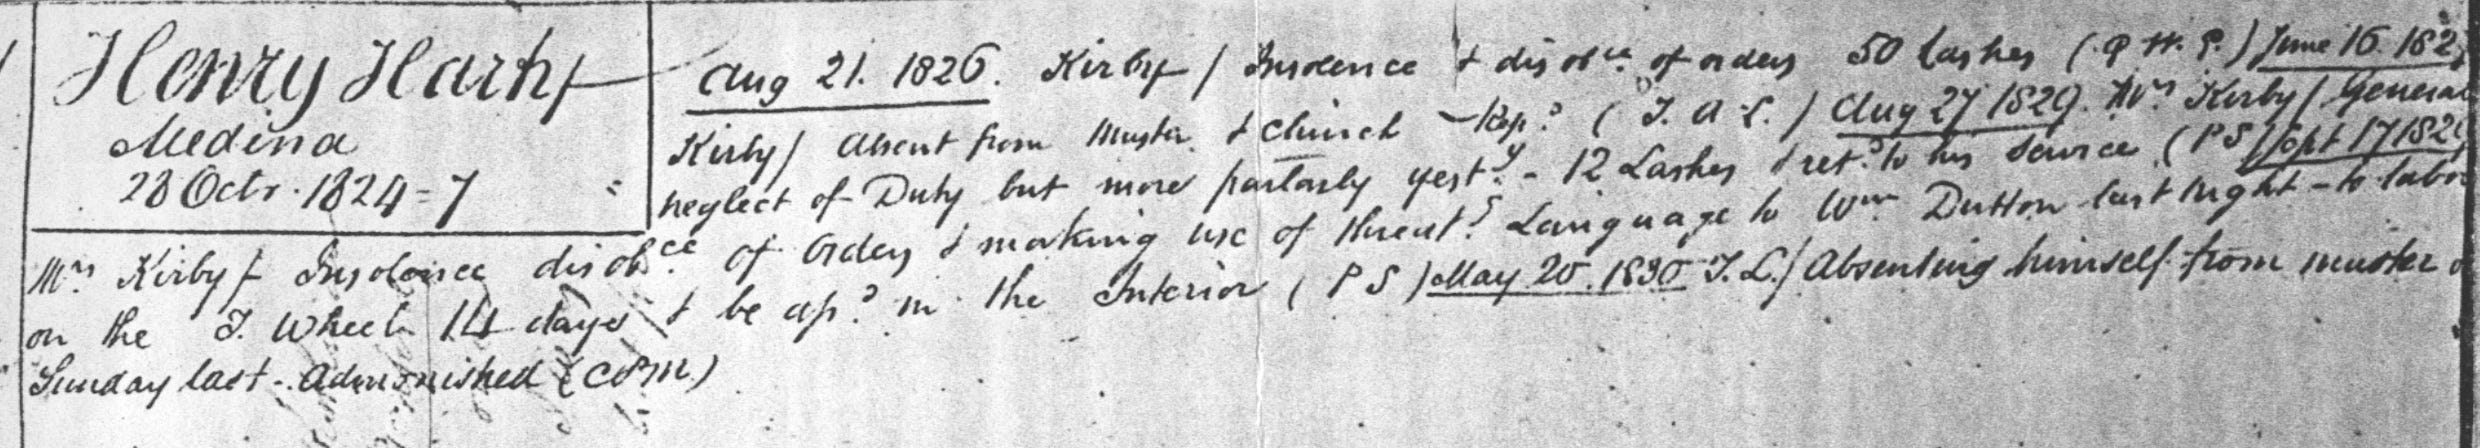 Henry Harby
Medina
28 Octr. 1824 = 7
Aug 21. 1826. Kirby / Insolence & disobce. of orders 50 lashes (P. H. P.) June 16. 182
Kirby / Absent from Muster & Church – Repd. (T. A. L.) Aug 27 1829. Mrs Kirby / General
neglect of Duty but more partarly yesty. – 12 Lashes & retd. to his Service (P S) Sept 17 182
Mrs Kirby / Insolence disobce of Orders & making use of threatg. Language to Wm Dutton last Night – to labor
on the T. Wheel 14 days & be apd. in the Interior (P S) May 20. 1830 T. L. / Absenting himself from muster
Sunday last – Admonished (CPM)